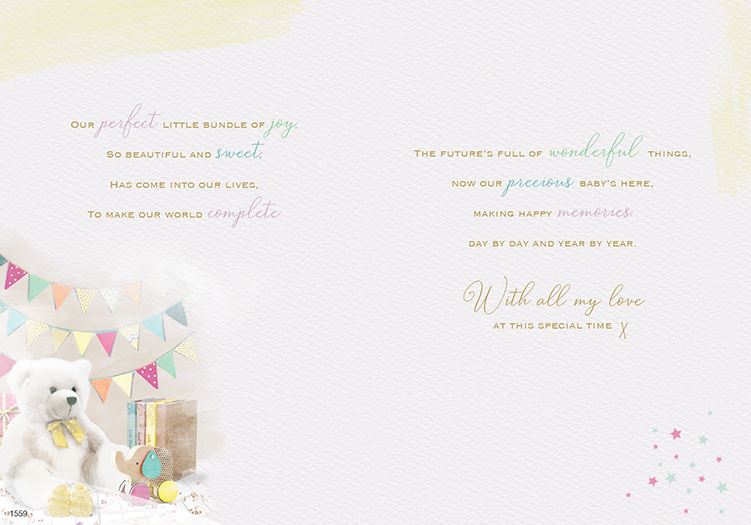 OUR perfect LITTLE BUNDLE OF joy,
SO BEAUTIFUL AND sweet,
HAS COME INTO OUR LIVES,
TO MAKE OUR WORLD complete.
THE FUTURE'S FULL OF wonderful THINGS,
NOW OUR precious BABY'S HERE,
MAKING HAPPY memories.
DAY BY DAY AND YEAR BY YEAR.
With all my love
AT THIS SPECIAL TIME X
1559